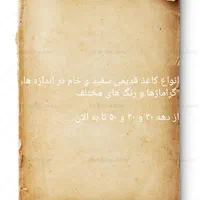 انواع کاغذ قدیمی سفید و خام در اندازه ها،
گراماژها و رنگ های مختلف
از دهه ۳۰ و ۴۰ و ۵۰ تا به الان